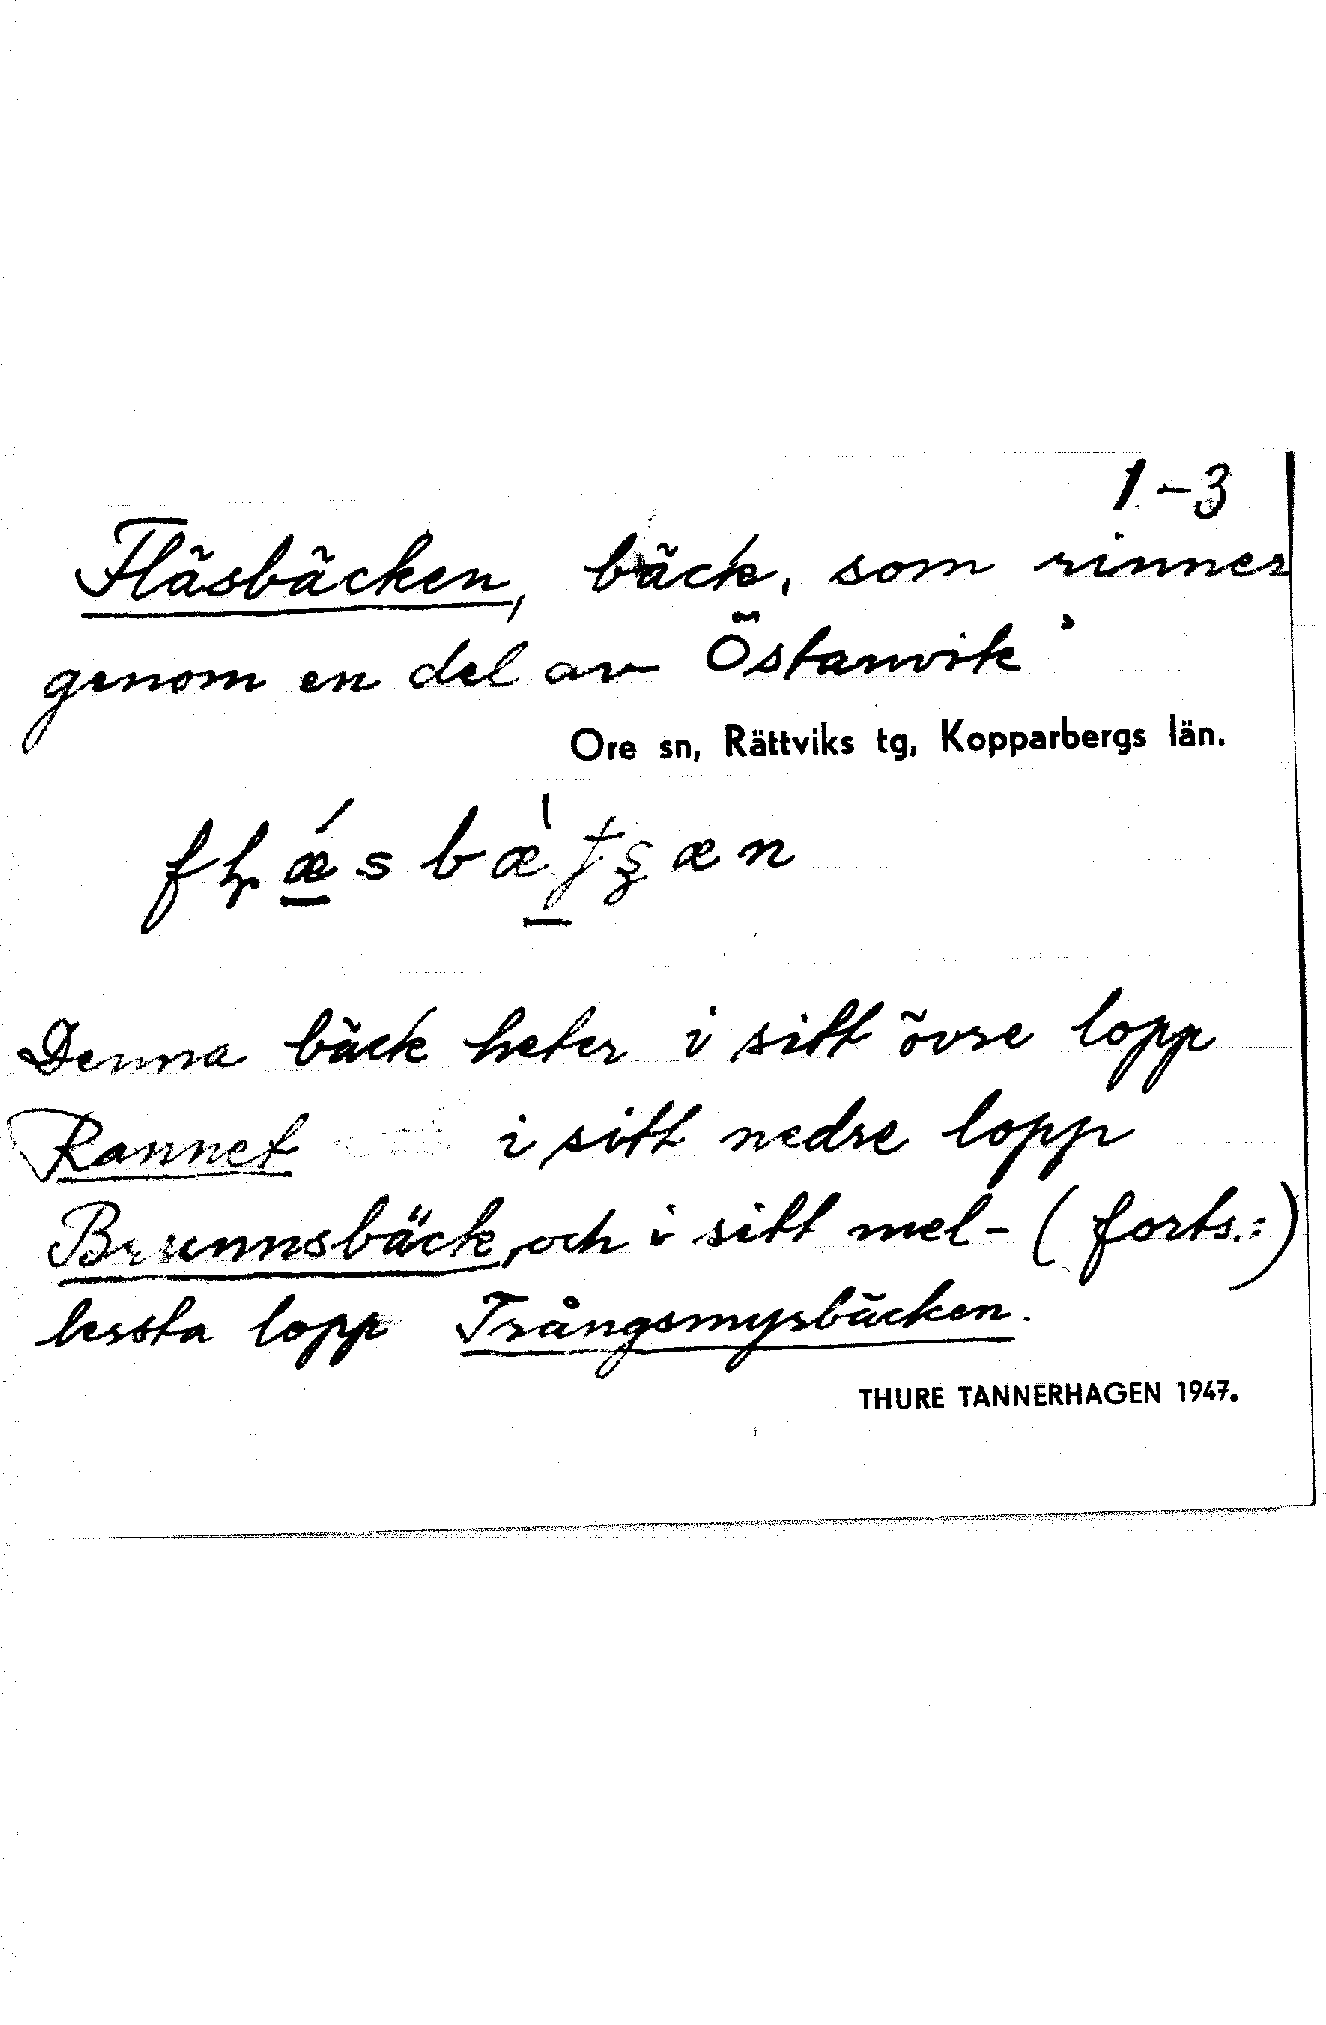 1-3
Fläsbäcken, bäck, som rinner
genom en del av Östanvik
Ore sn, Rättviks tg, Kopparbergs län.
Denna bäck heter i sitt övre lopp
Rannet i sitt nedre lopp
Brunnsbäck, och i sitt mel- (forts.:)
lersta lopp Trångsmyrbäcken.
THURE TANNERHAGEN 1947.